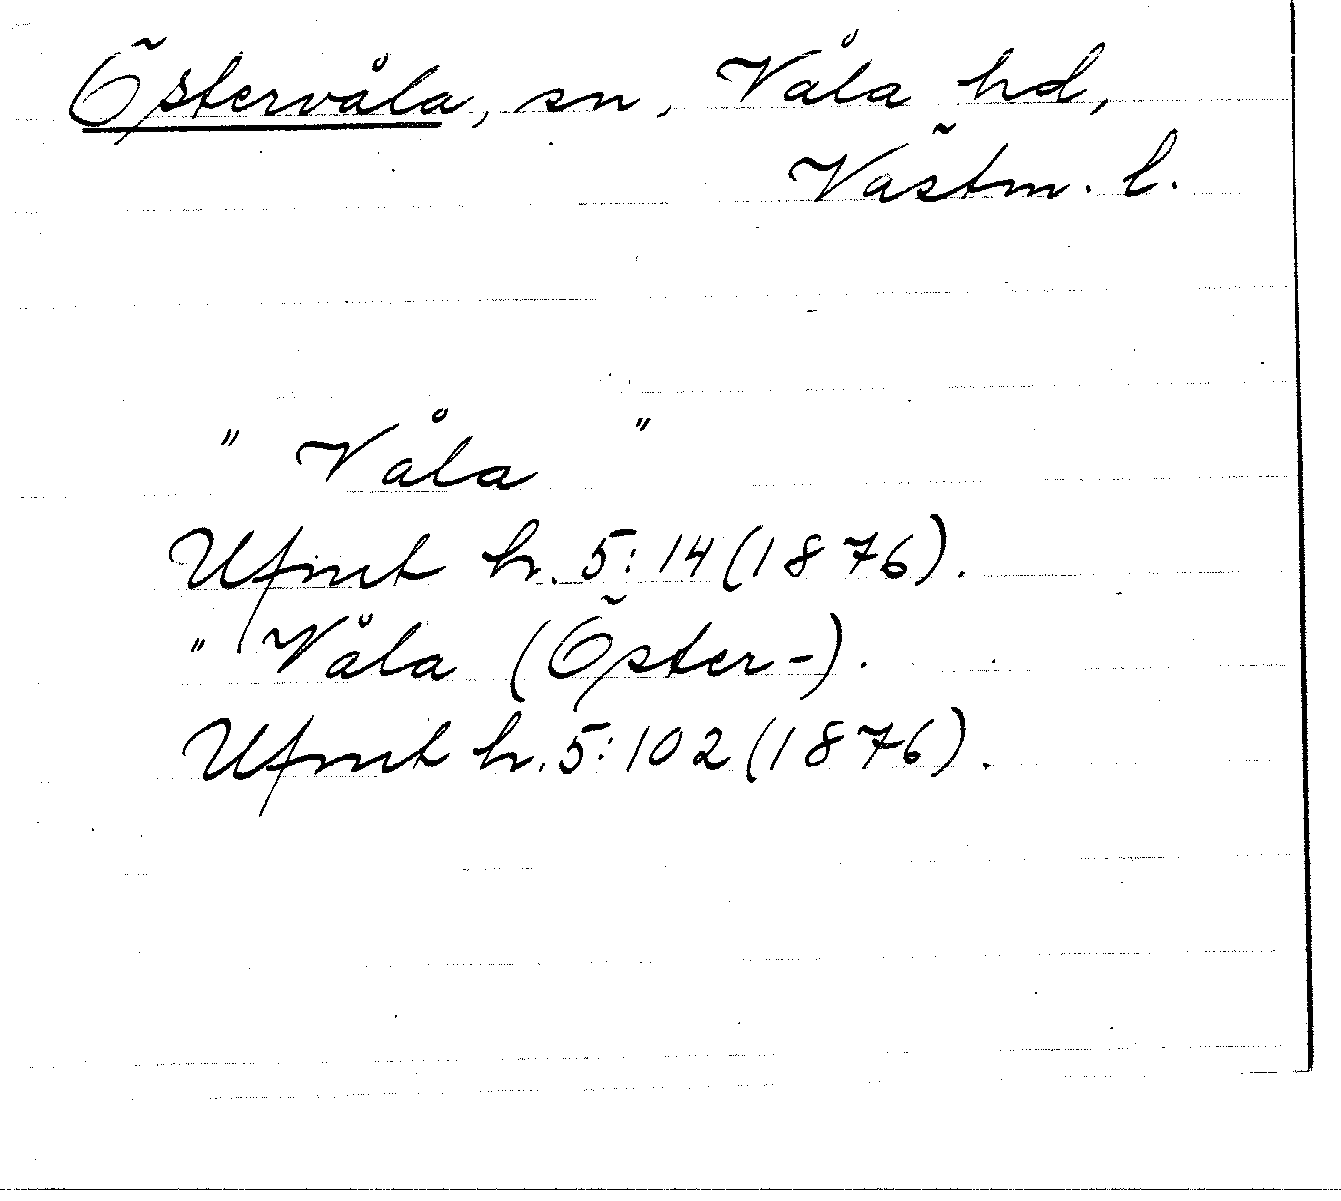 Östervåla, sn, Våla hd,
Västm. l.
" Våla "
Ufmt h. 5:14 (1876).
" Våla (Öster-).
Ufmt h. 5:102 (1876).